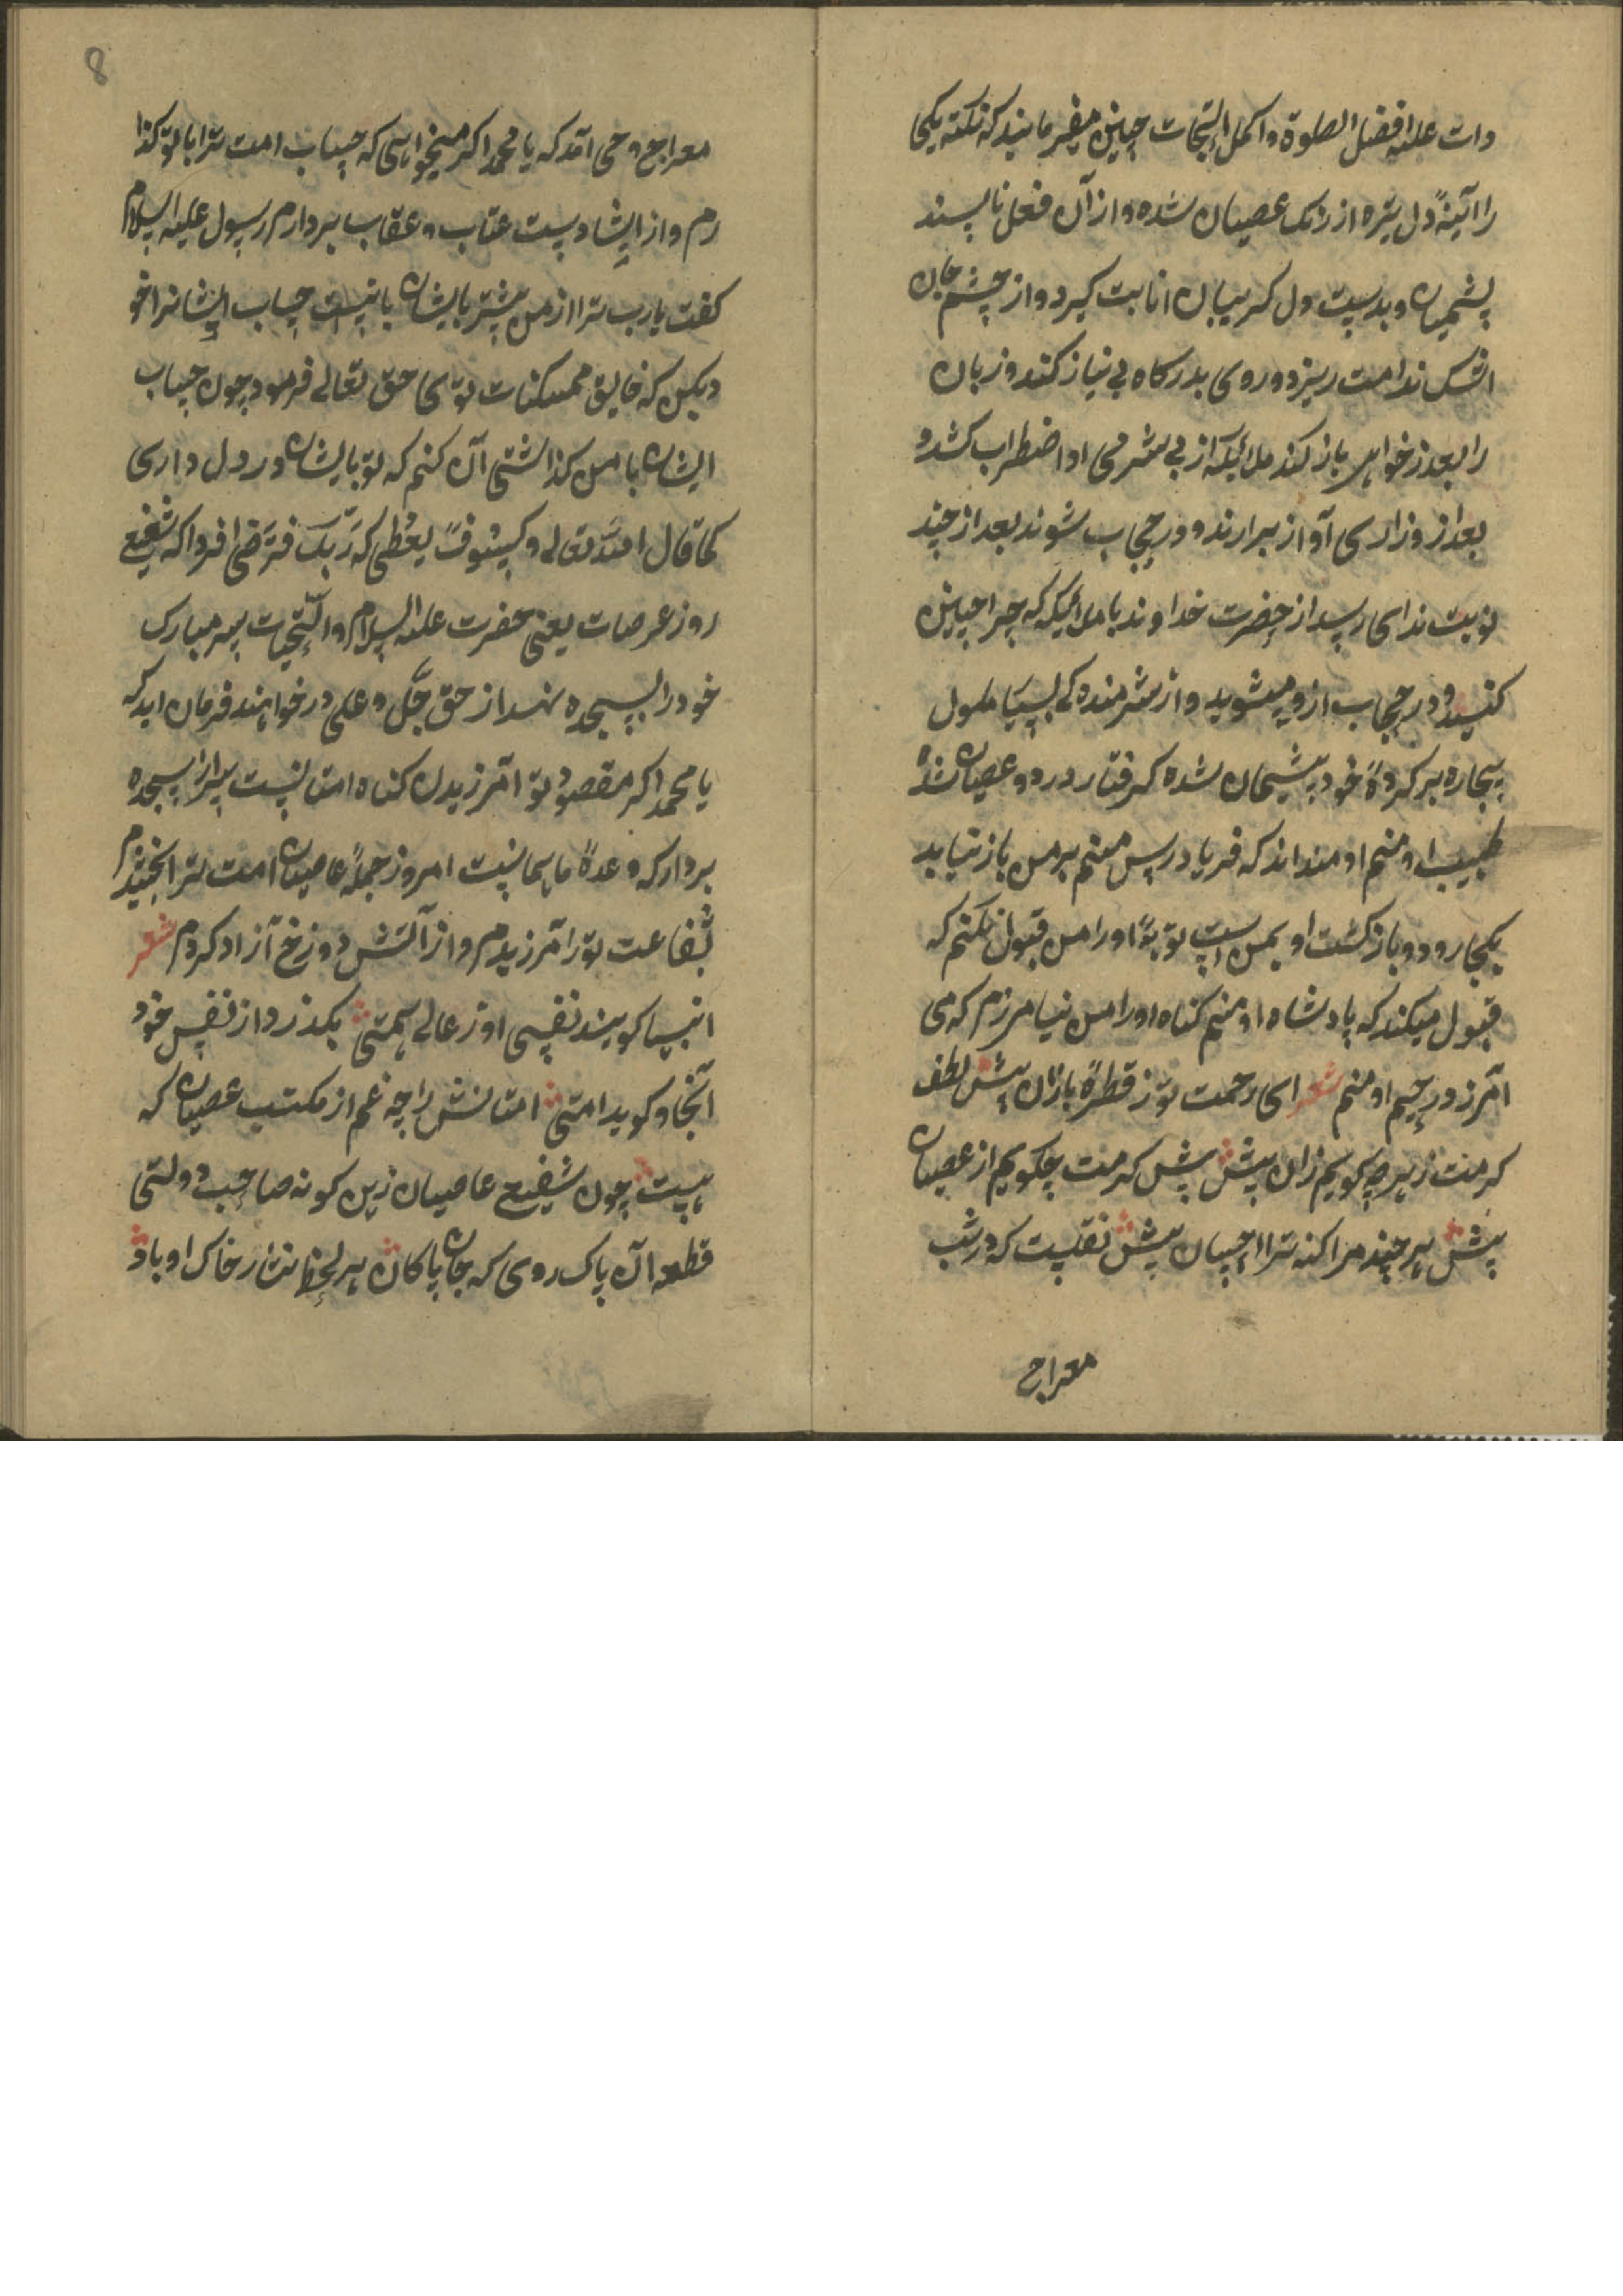 دات علیه افضل الصلوة و اکمل التحیات چنین میفرمایند که نکته یکی
را آئینهٔ دل تیره از زنک عصیان شده و از آن فعل ناپسند
پشمیان و بدست دل کریبان انابت کیرد و از چشم جان
اشک ندامت ریزد و روی بدرکاه بی نیاز کند و زبان
را بعذرخواهی باز کند ملائیکه از بی شرمی او اضطراب کشند و
بعد از وزاری آواز برارند و در حجاب شوند بعد از چند
نوبت ندای رسد از حضرت خداوند با ملائیکه که چرا چنین
کنید و در حجاب ازو میشوید و از شرمنده کی بسیا ملول
بیچاره بر کردهٔ خود پشیمان شده کرفتار درد و عصیان شده
طبیب او منم او منداند که فریادرس منم بر من باز نیاید
بکجا رود و بازکشت او بمن است توبهٔ او را من قبول نکنم که
قبول میکند که پادشاه او منم کناه او را من نیامرزم که می
آمرزد رحیم او منم شعر ای رحمت تو ز قطرهٔ باران پیش لطف
کرمنت زهر چه کویم زان پیش پیش کرمت چکویم از عصیان
پیش هر چند مرا کنه ترا احسان پیش نقلست که در شب
معراج
8
معراج وحی آمد که یا محمد اکر میخواهی که حساب امت ترا با تو کذا
رم و از ایشا دست عتاب و عقاب بردارم رسول علیه السلام
کفت یارب ترا از من پیشتر بایشان بانیست حساب ایشانرا خو
دبکن که خالیق ممکنات توی حق تعالی فرمود چون حساب
ایشان با من کذاشتی آن کنم که تو بایشان در دل داری
کما قال الله تعالی و لسوف یعطیک ربک فترضی فردا که شفیع
روز عرصات یعنی حضرت علیه السلام و التحیات سر مبارک
خود را بسجده نهد از حق جل و علی درخواهند فرمان اید که
یا محمد اکر مقصود تو آمرزیدن کناه امتانست سر از سجده
بردار که وعدهٔ ما همانست امروز جملهٔ عاصیان امت ترا بخشیدم
بشفاعت تو را آمرزیدم و از آتش دوزخ آزاد کردم شعر
انبیا کویند نفسی او ز عالی همتی بکذرد از نفس خود
آنجا و کوید امتی امتانش را چه غم از مکتب عصیان که
هست چون شفیع عاصیان زین کونه صاحب دولتی
قطعه آن پاک روی که جان پاکان هر لحظه نثار خاک او باد